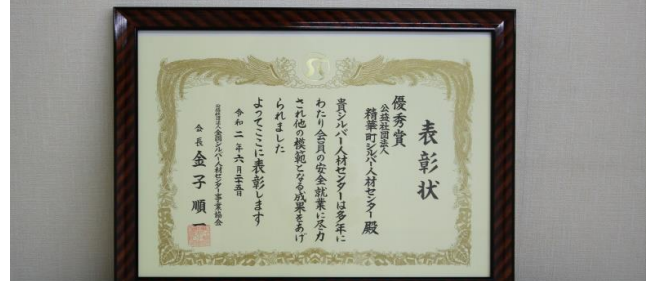 表彰状
優秀賞
公益社団法人
精華町シルバー人材センター殿
貴シルバー人材センターは多年に
わたり会員の安全就業に尽力
され他の模範となる成果をあげ
られました
よってここに表彰します
令和二年六月二十五日
公益社団法人全国シルバー人材センター事業協会
会長 金子順一